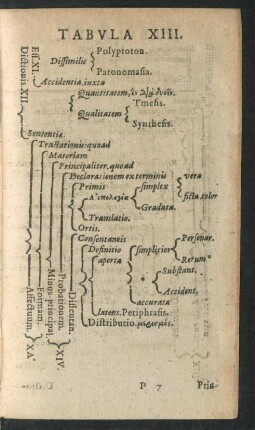 TABVLA XIII.
Polyptoton.
Dissimilis
Paronomasia.
Accidentia, iuxta
Dictionis. XII.
Quantitatem,
Tmesis.
Qualitatem
Synthesis.
Sententiæ.
Tractationis: quoad
Materiam
Principaliter, quoad
Declarationem ex terminis
Primis
simplex
vera
ficta. color
Gradata.
Translatio.
Ortis.
Consentaneis
Definitio
simplicior
Personar.
Rerum
aperta
Substant.
Accident.
accurata
latens. Periphrasis.
Distributio. μερισμός.
Dissentan.
Probationem.
XIV.
Minus principal.
Formam.
Affectuum.
P 7